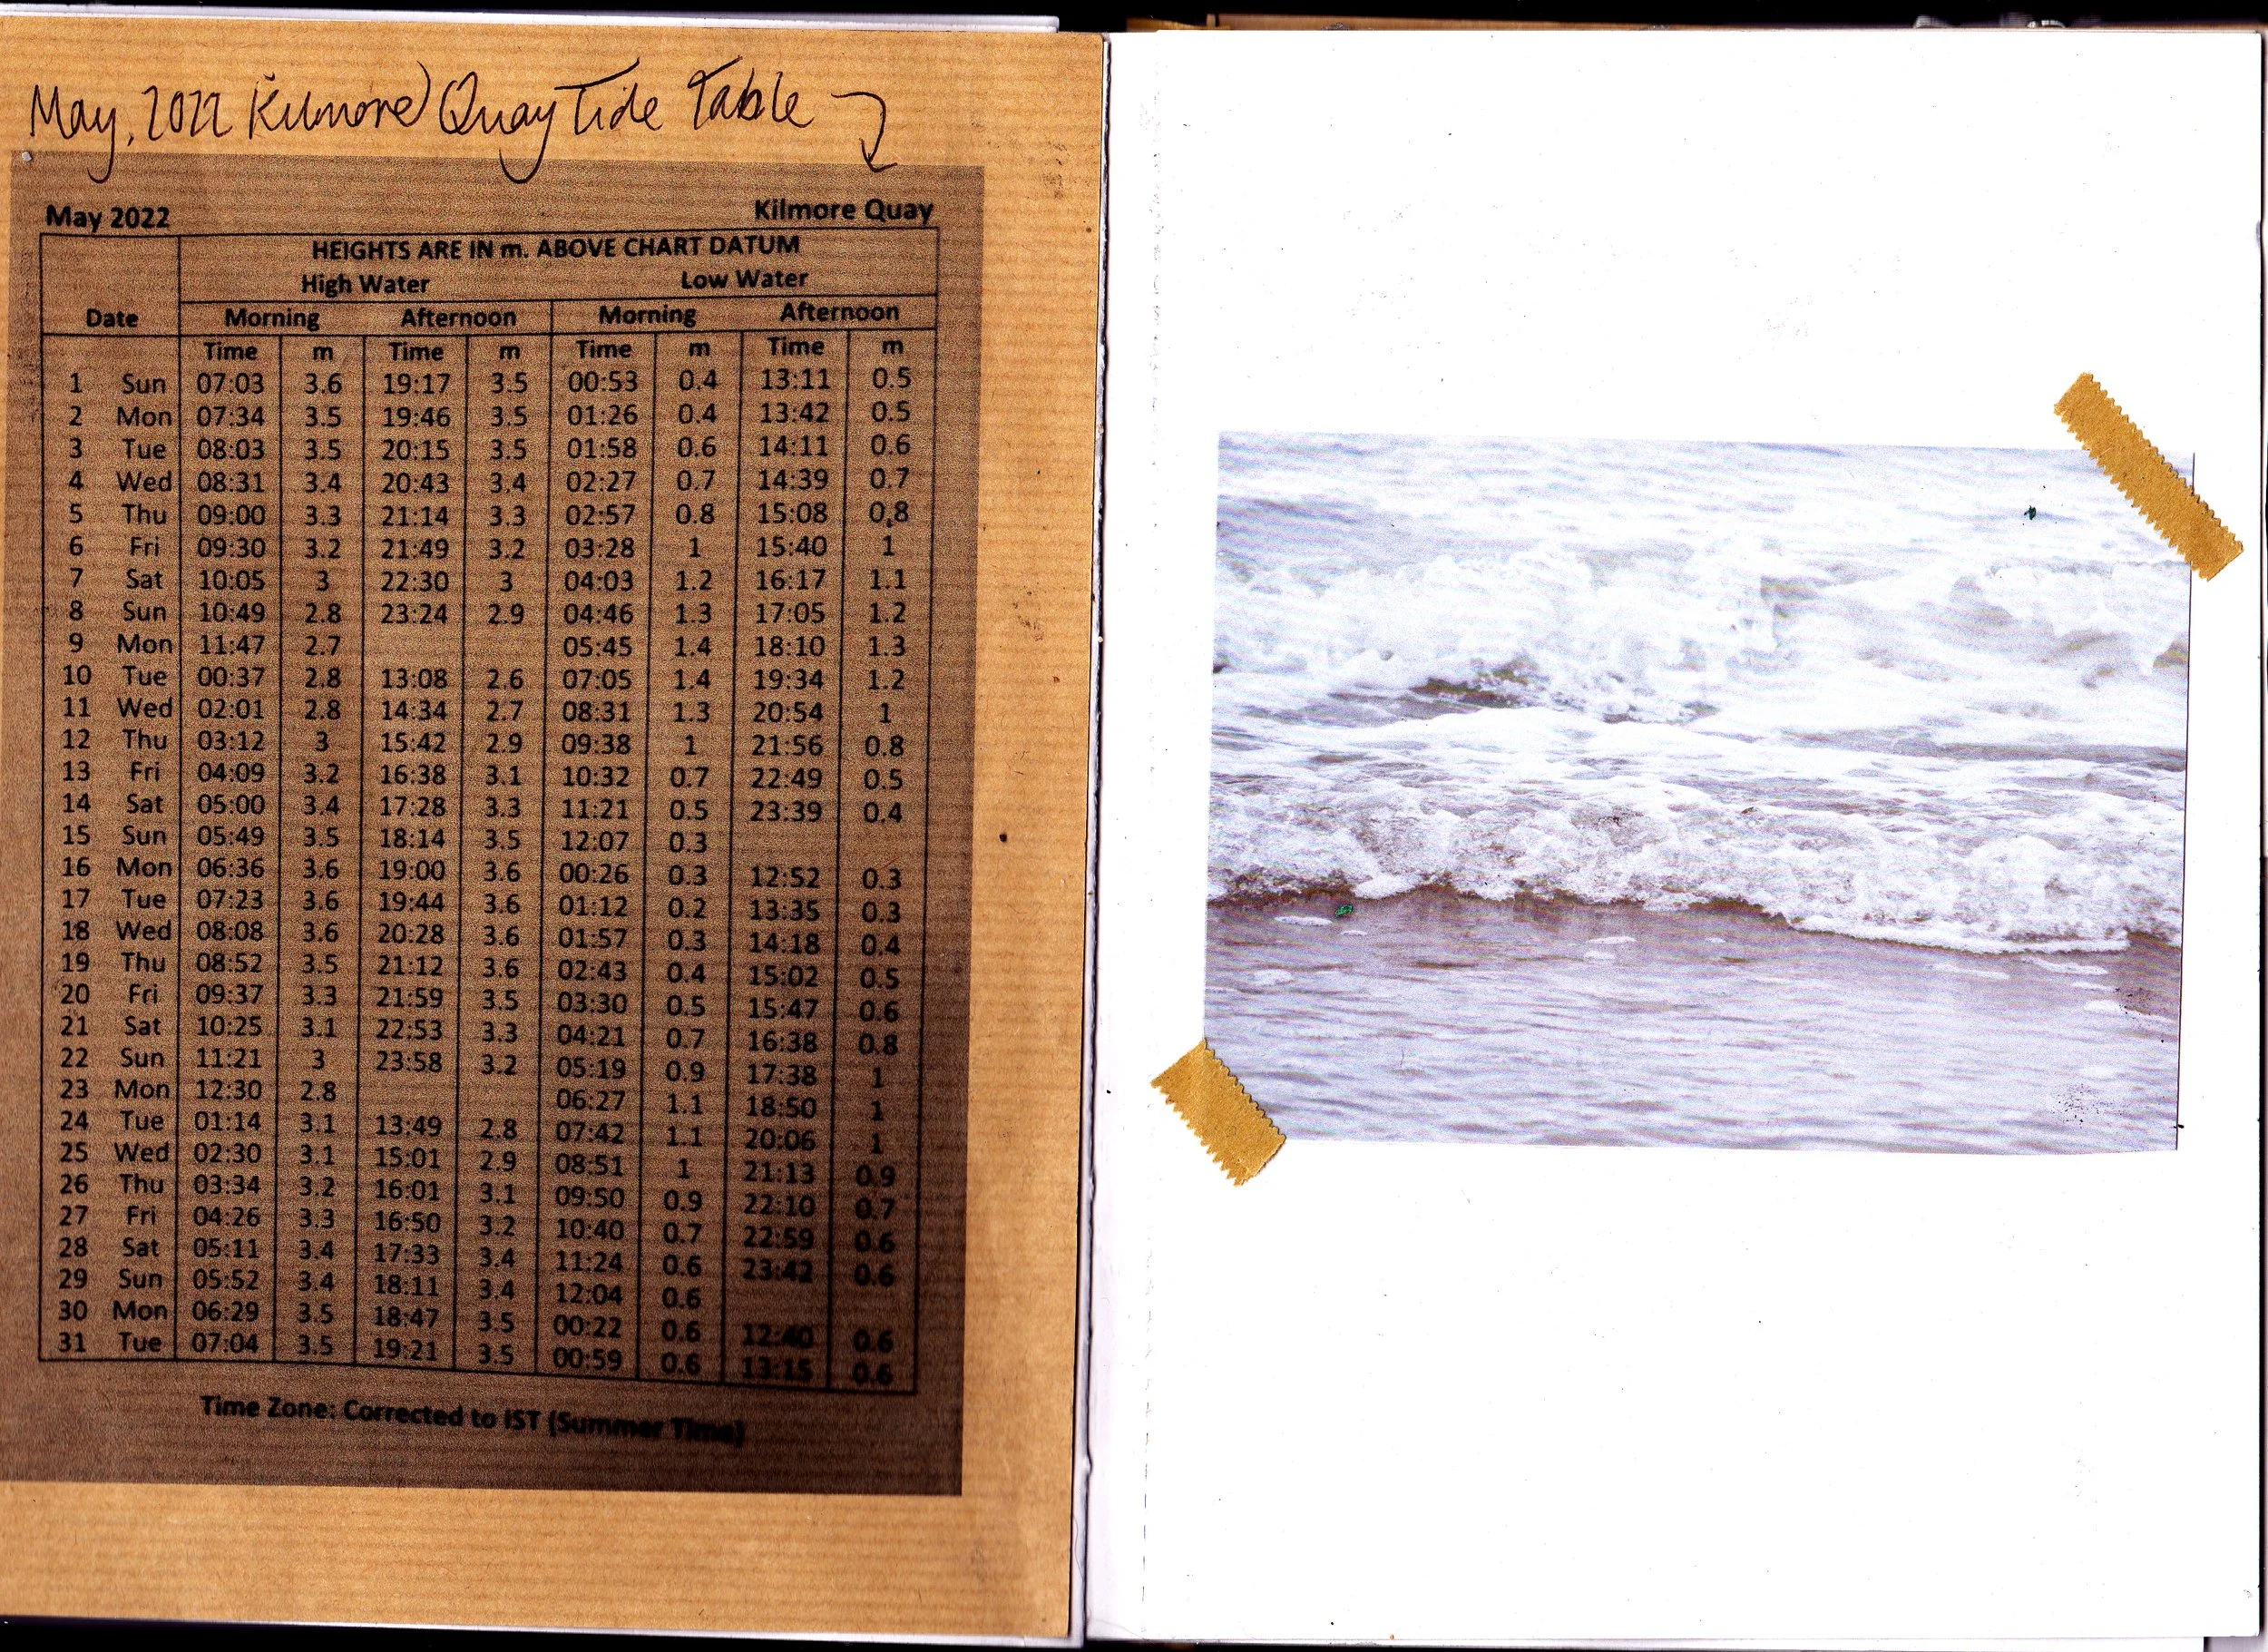 May, 2022 Kilmore Quay Tide Table
May 2022 Kilmore Quay
HEIGHTS ARE IN m. ABOVE CHART DATUM
High Water Low Water
Date Morning Afternoon Morning Afternoon
Time m Time m Time m Time m
1 Sun 07:03 3.6 19:17 3.5 00:53 0.4 13:11 0.5
2 Mon 07:34 3.5 19:46 3.5 01:26 0.4 13:42 0.5
3 Tue 08:03 3.5 20:15 3.5 01:58 0.6 14:11 0.6
4 Wed 08:31 3.4 20:43 3.4 02:27 0.7 14:39 0.7
5 Thu 09:00 3.3 21:14 3.3 02:57 0.8 15:08 0.8
6 Fri 09:30 3.2 21:49 3.2 03:28 1 15:40 1
7 Sat 10:05 3 22:30 3 04:03 1.2 16:17 1.1
8 Sun 10:49 2.8 23:24 2.9 04:46 1.3 17:05 1.2
9 Mon 11:47 2.7 05:45 1.4 18:10 1.3
10 Tue 00:37 2.8 13:08 2.6 07:05 1.4 19:34 1.2
11 Wed 02:01 2.8 14:34 2.7 08:31 1.3 20:54 1
12 Thu 03:12 3 15:42 2.9 09:38 1 21:56 0.8
13 Fri 04:09 3.2 16:38 3.1 10:32 0.7 22:49 0.5
14 Sat 05:00 3.4 17:28 3.3 11:21 0.5 23:39 0.4
15 Sun 05:49 3.5 18:14 3.5 12:07 0.3
16 Mon 06:36 3.6 19:00 3.6 00:26 0.3 12:52 0.3
17 Tue 07:23 3.6 19:44 3.6 01:12 0.2 13:35 0.3
18 Wed 08:08 3.6 20:28 3.6 01:57 0.3 14:18 0.4
19 Thu 08:52 3.5 21:12 3.6 02:43 0.4 15:02 0.5
20 Fri 09:37 3.3 21:59 3.5 03:30 0.5 15:47 0.6
21 Sat 10:25 3.1 22:53 3.3 04:21 0.7 16:38 0.8
22 Sun 11:21 3 23:58 3.2 05:19 0.9 17:38 1
23 Mon 12:30 2.8 06:27 1.1 18:50 1
24 Tue 01:14 3.1 13:49 2.8 07:42 1.1 20:06 1
25 Wed 02:30 3.1 15:01 2.9 08:51 1 21:13 0.9
26 Thu 03:34 3.2 16:01 3.1 09:50 0.9 22:10 0.7
27 Fri 04:26 3.3 16:50 3.2 10:40 0.7 22:59 0.6
28 Sat 05:11 3.4 17:33 3.4 11:24 0.6 23:42 0.6
29 Sun 05:52 3.4 18:11 3.4 12:04 0.6
30 Mon 06:29 3.5 18:47 3.5 00:22 0.6 12:40 0.6
31 Tue 07:04 3.5 19:21 3.5 00:59 0.6 13:15 0.6
Time Zone: Corrected to IST (Summer Time)